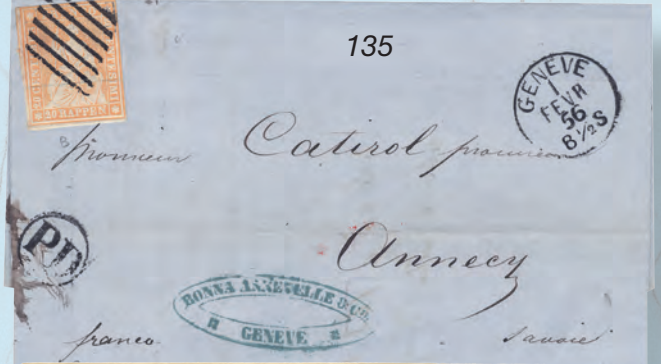 135
20 RAPPEN
GENEVE
1
FEVR
56
8½S
Monsieur Catirol
PD
Annecy
BONNA ANNEVELLE & Cie
GENEVE
franco Savoie